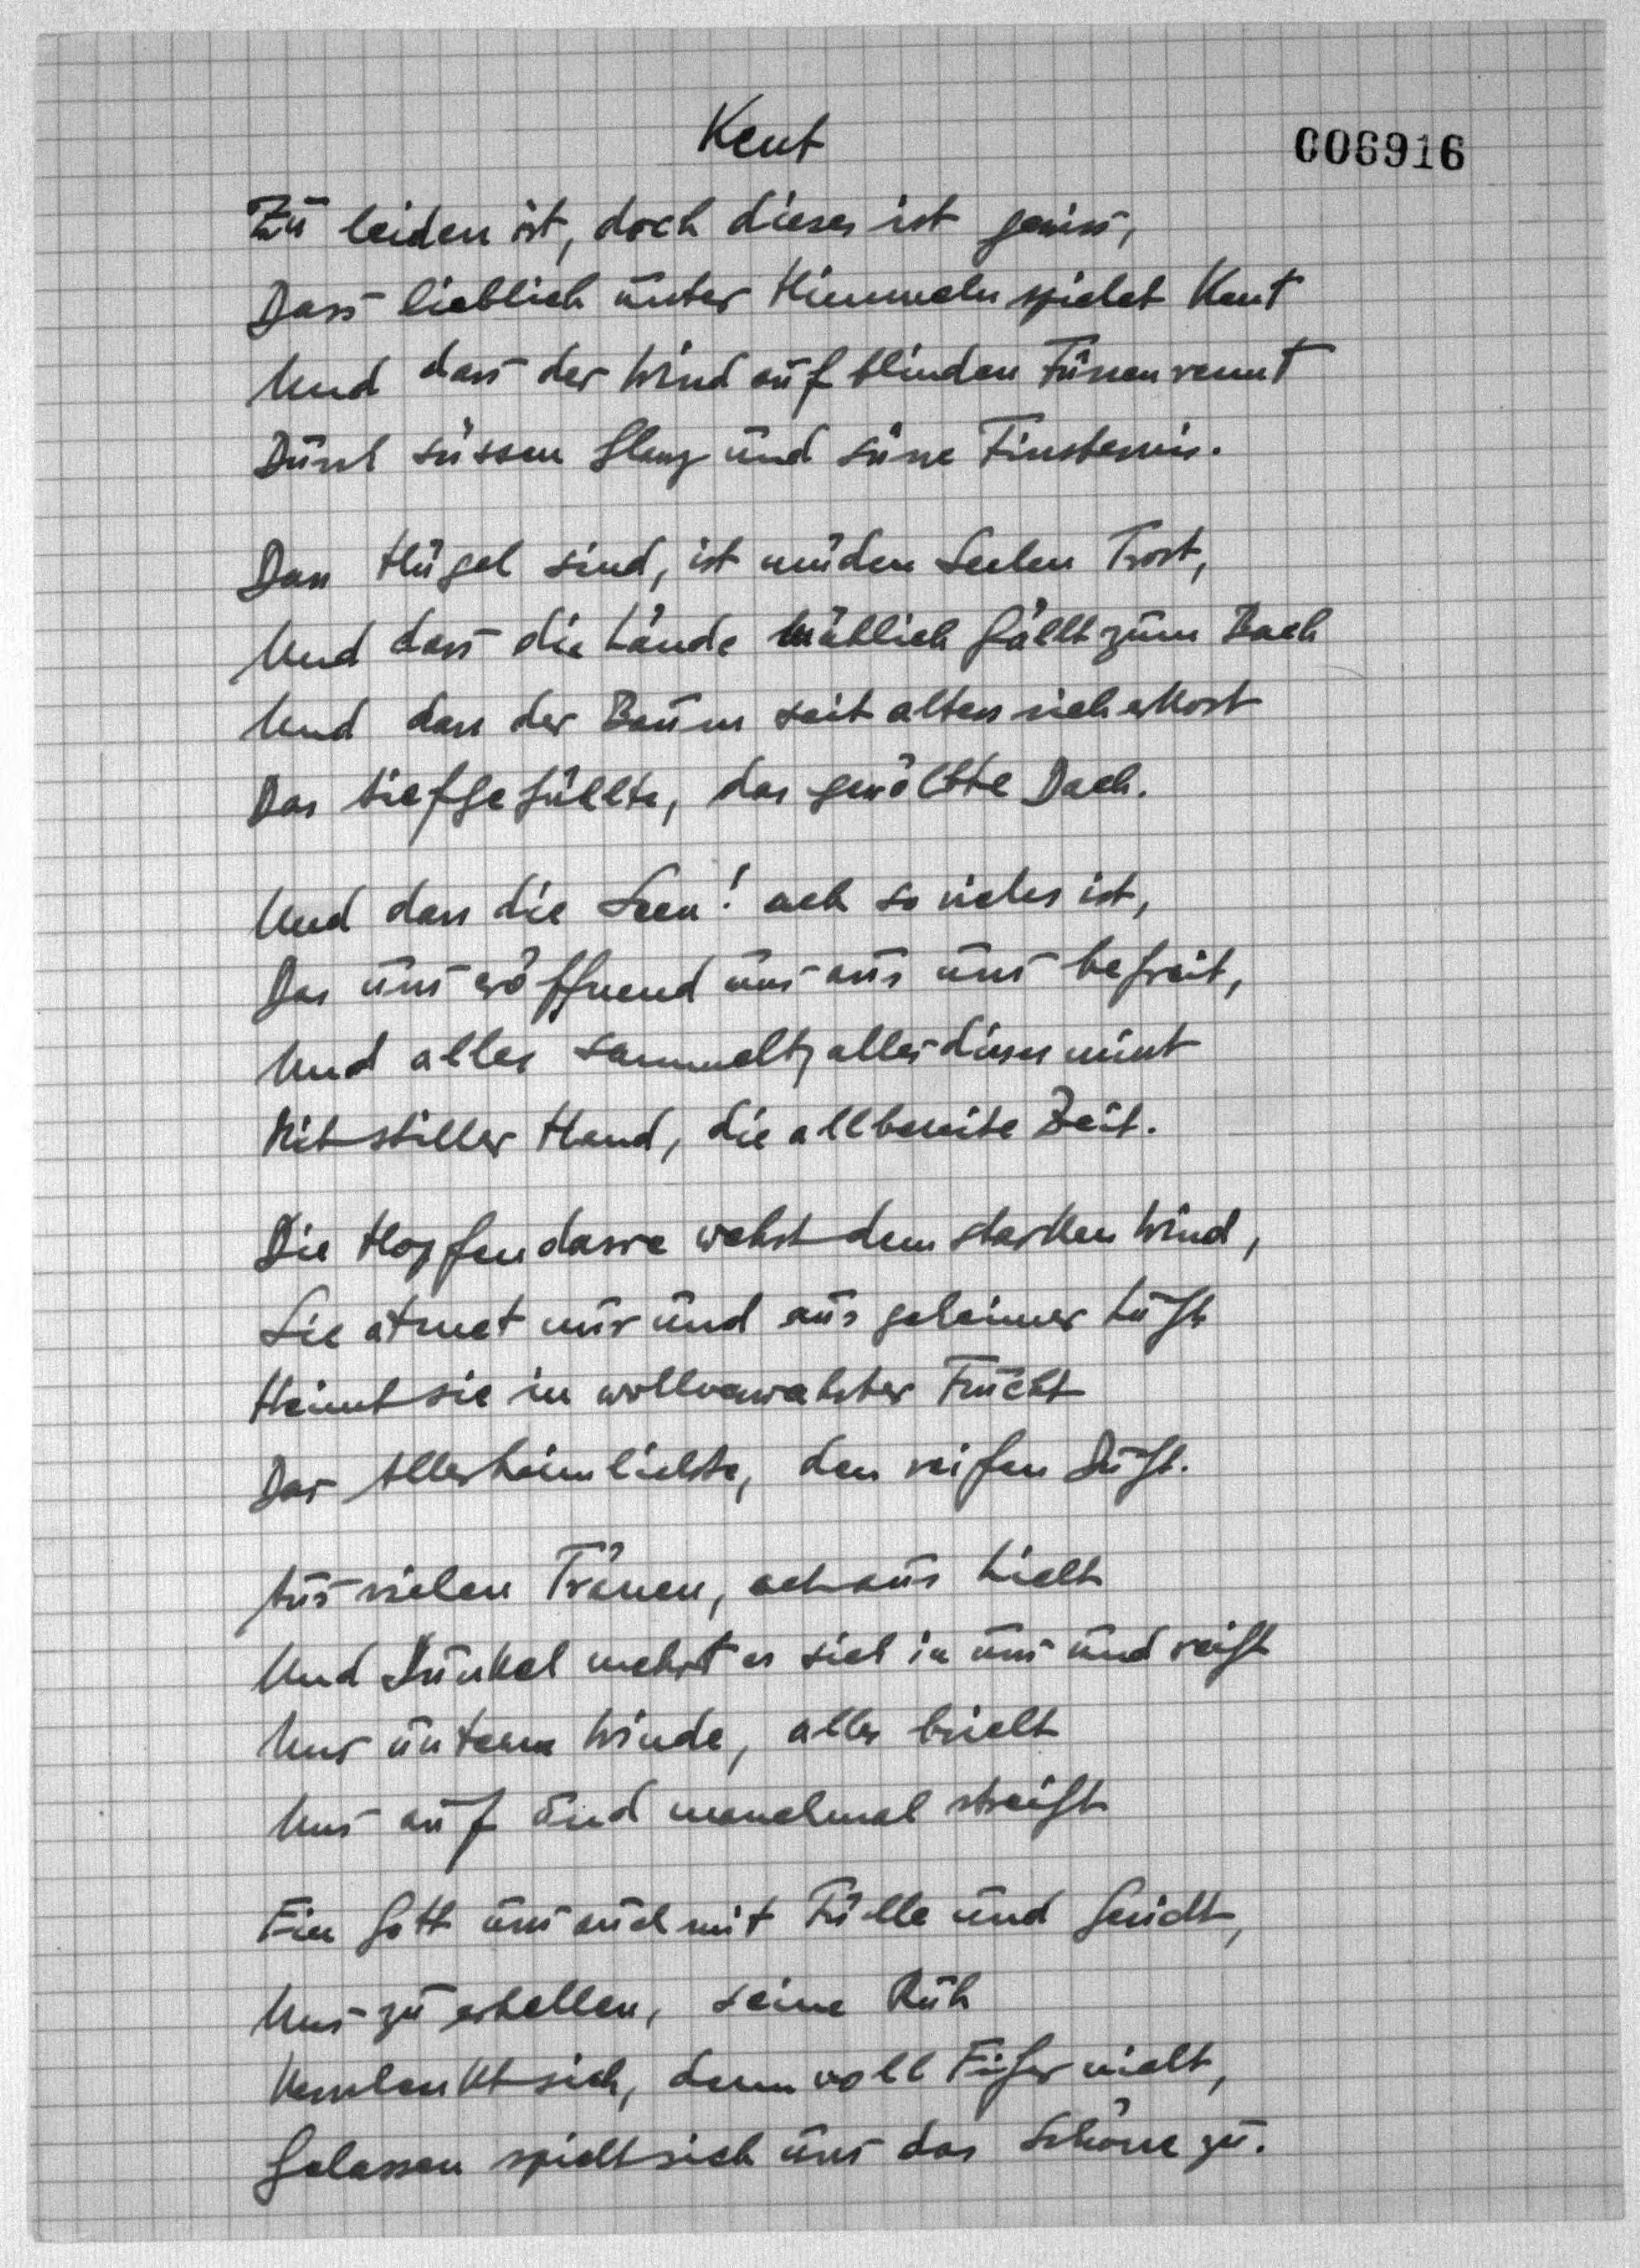 Kent
006916
Zu leiden ist, doch dieses ist gewiss,
Dass lieblich unter Himmeln spielet Kent
Und dass der Wind auf blinden Füssen rennt
Durch süssen Glanz und süsse Finsternis.
Dass Hügel sind, ist müden Seelen Trost,
Und dass die Lände mählich fällt zum Bach
Und dass der Baum seit alters sich erkost
Das tiefgefüllte, das gewölbte Dach.
Und dass die Seen! ach so vieles ist,
Das uns eröffnend uns aus uns befreit,
Und alles sammelt, alles dieses misst
Mit stiller Hand, die allbereite Zeit.
Die Hopfendarre wehrt dem starken Wind,
Sie atmet nur und aus geheimer Luft
Heimt sie in wollverwahrter Frucht
Das Allerheimlichste, den reifen Duft.
Aus vielen Tränen, ach aus Licht
Und Dunkel mehrt es sich in uns und reift
Uns unterm Winde, alles bricht
Uns auf und manchmal streift
Ein Gott uns auch mit Fülle und Gesicht,
Uns zu erhellen, seine Ruh
Verschenkt sich, denn voll Eifer nicht,
Gelassen spielt sich uns das Schöne zu.